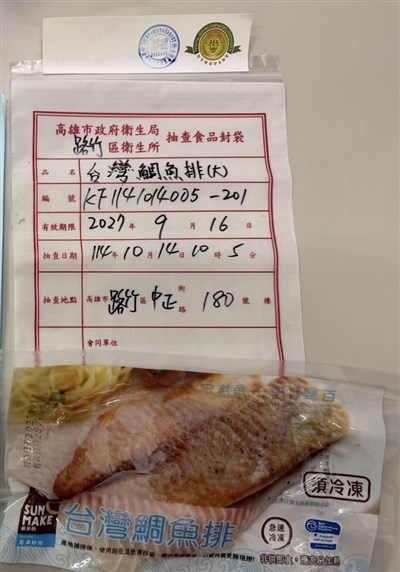 高雄市政府衛生局
路竹區衛生所
抽查食品封袋
品名 台灣鯛魚排(大)
編號 KF1141014005-201
有效期限 2027年9月16日
抽查日期 114年10月14日10時5分
抽查地點 高雄市路竹區中正街路180號樓
會同單位
須冷凍
SUN MAKE
台灣鯛魚排
急速冷凍